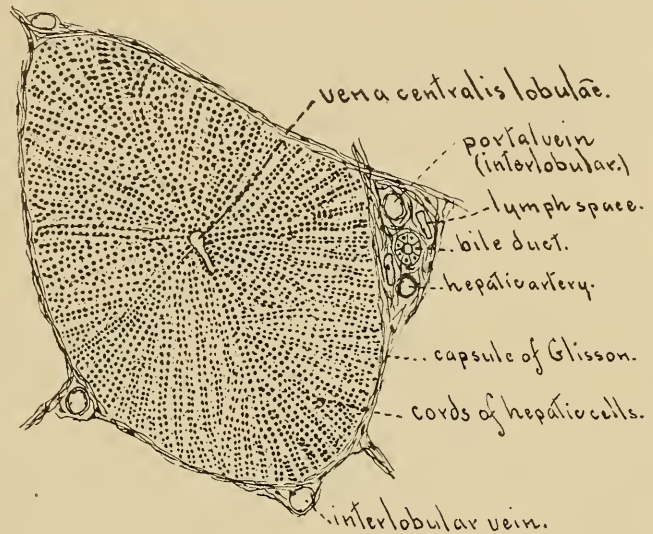 vena centralis lobulae.
portal vein
(interlobular)
lymph space.
bile duct.
hepatic artery.
capsule of Glisson.
cords of hepatic cells.
interlobular vein.